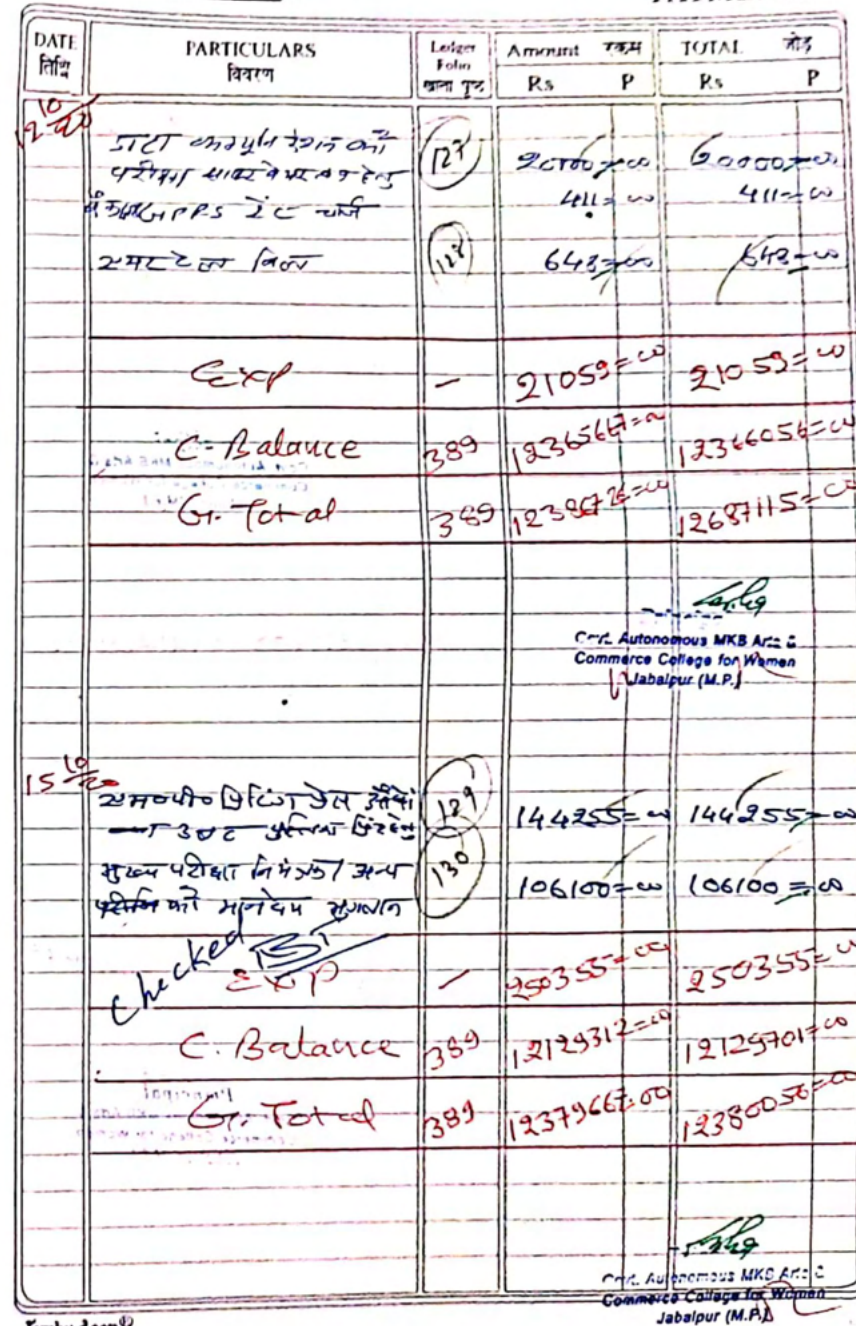 DATE PARTICULARS Ledger Folio Amount रकम TOTAL जोड़
तिथि विवरण खाना पृष्ठ Rs P Rs P
12 10/20
डाटा को
परीक्षा हेतु 127 20000=00 20000=00
GPRS रेंट चार्ज 411=00 411=00
बिल 128 648=00 648=00
Exp - 21059=00 21059=00
C. Balance 389 12365667=00 12366056=00
G. Total 389 12386726=00 12687115=00
Govt. Autonomous MKB Arts &
Commerce College for Women
Jabalpur (M.P.)
15 10/20
एम०पी० प्रिटिंग प्रेस 129 144255=00 144255=00
मुख्य परीक्षा नियंत्रक / अन्य 130 106100=00 106100=00
को मानदेय भुगतान
checked
Exp - 250355=00 250355=00
C. Balance 389 12129312=00 12129701=00
Gr. Total 389 12379667=00 12380056=00
Govt. Autonomous MKB Arts &
Commerce College for Women
Jabalpur (M.P.)